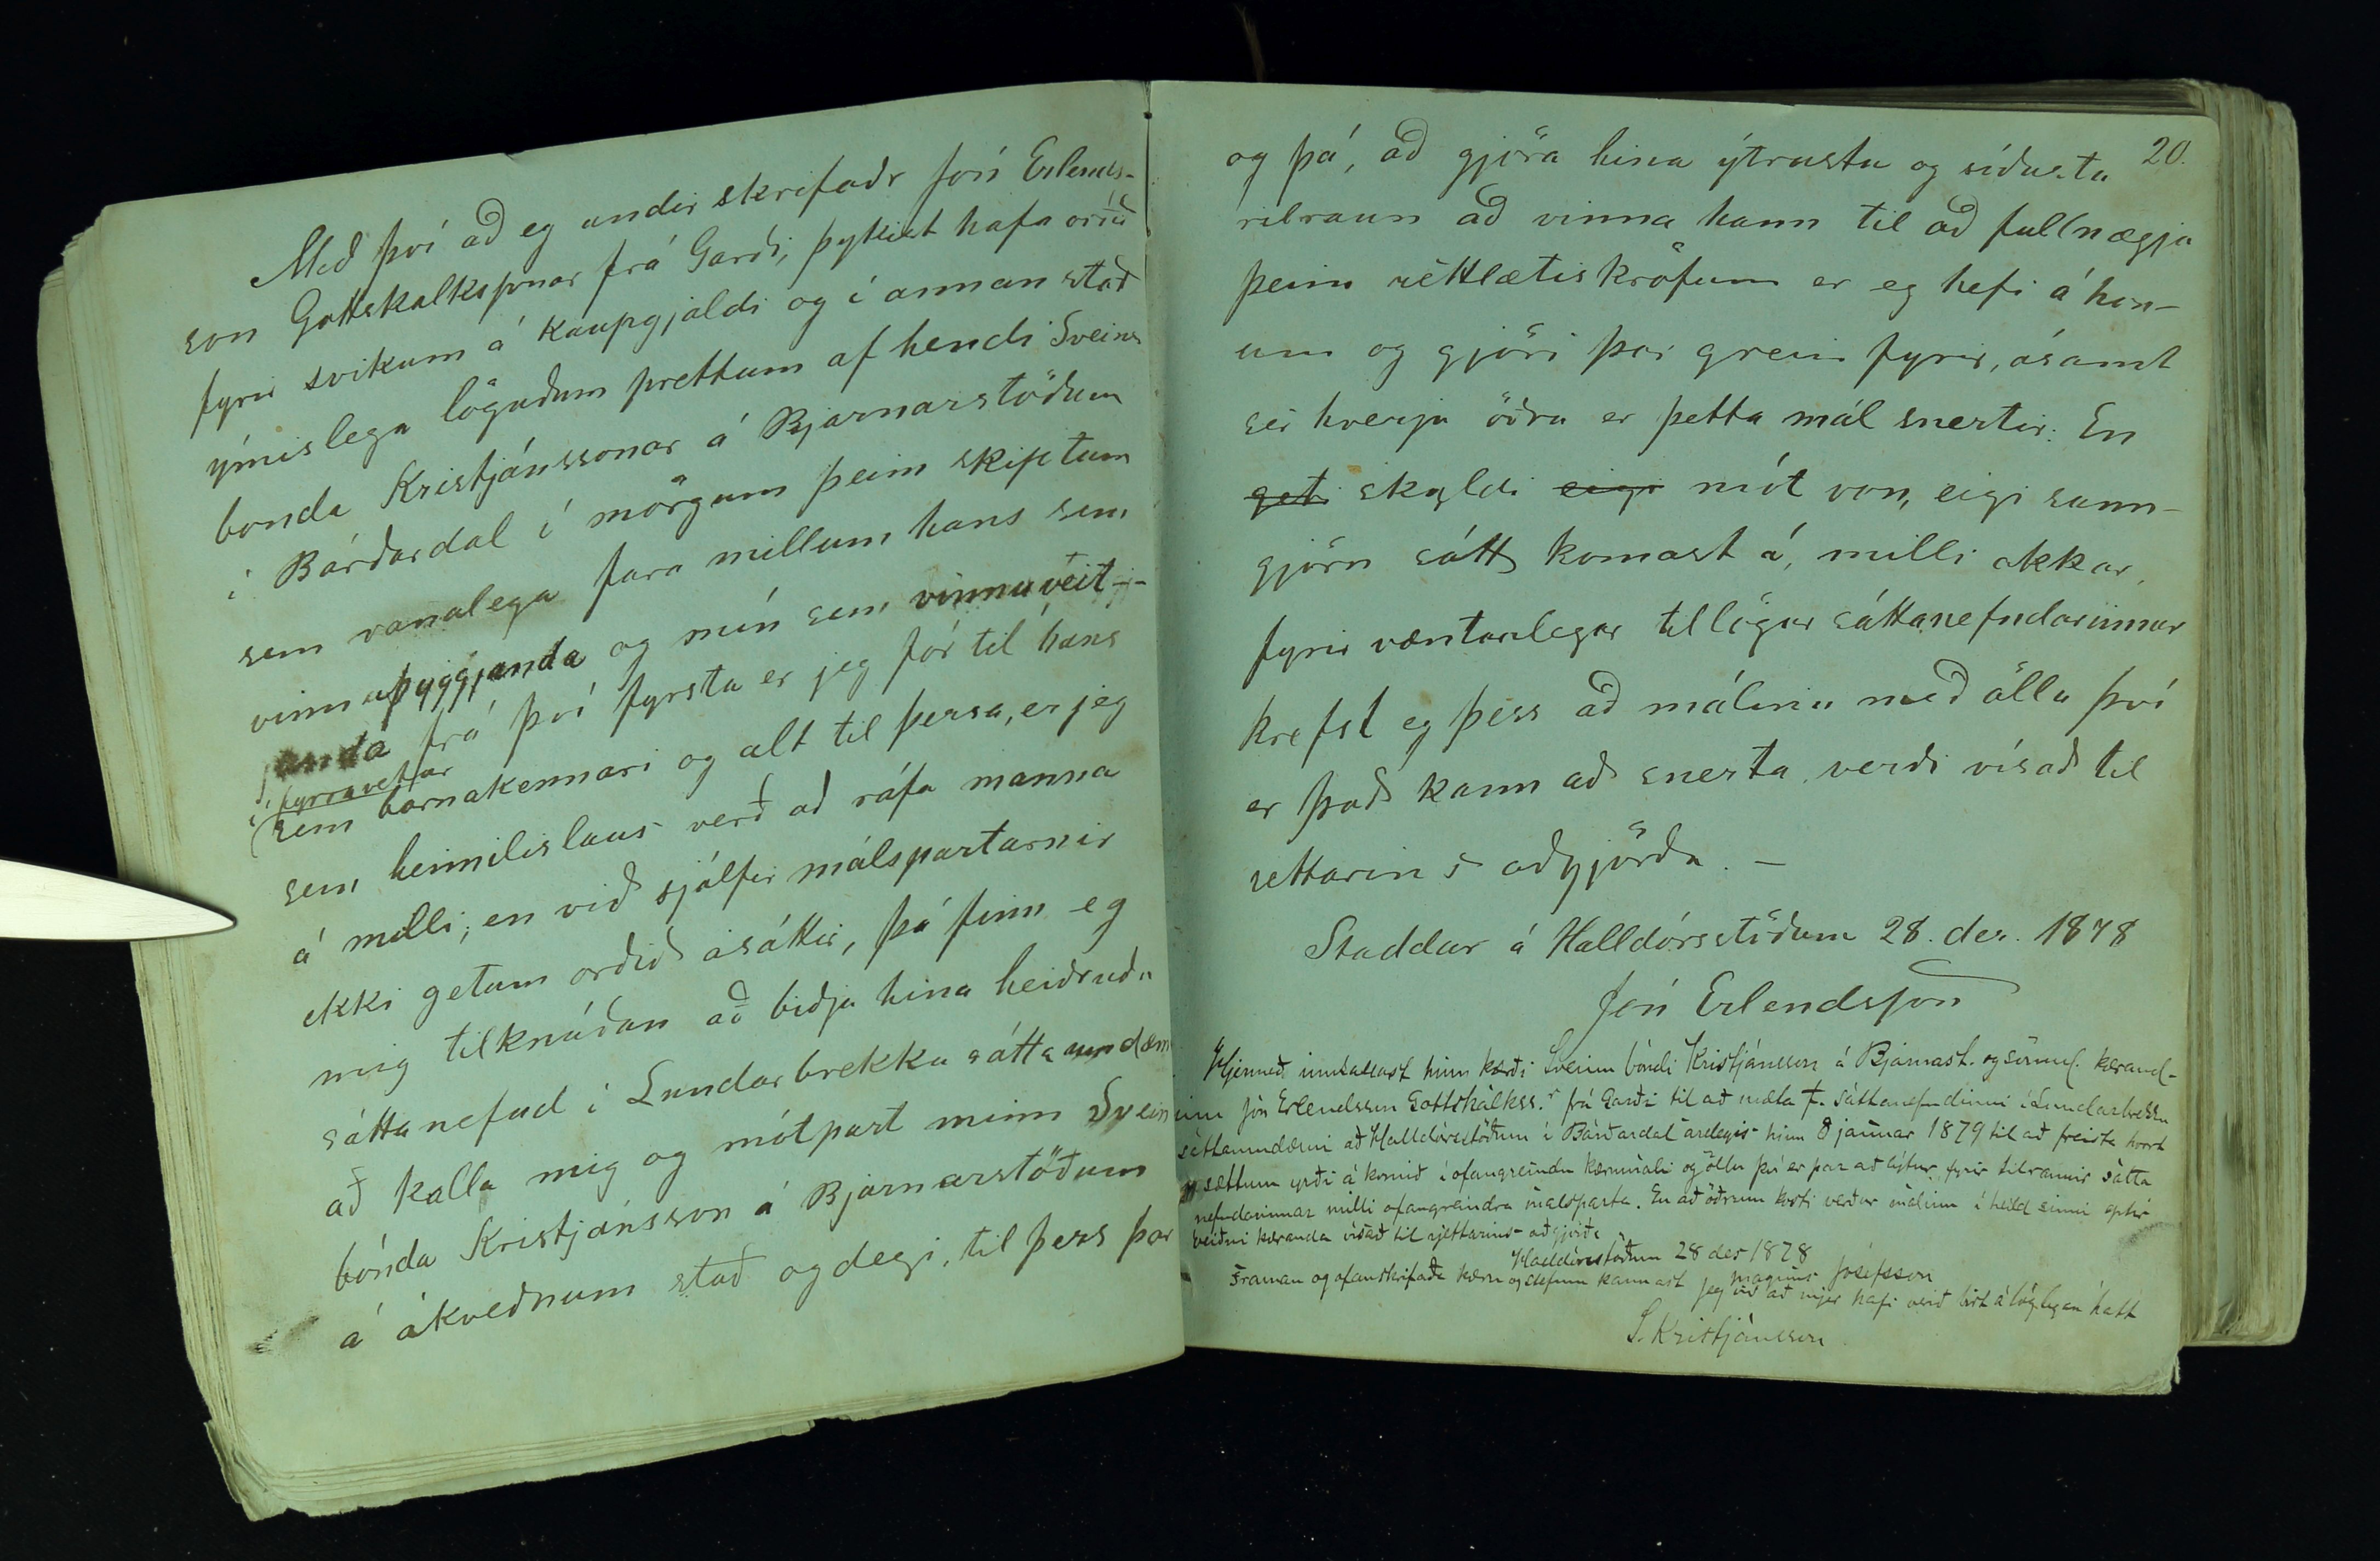 Með því að eg undir skrifaðr Jón Erlends-
son Gottskalkssonar frá Garði, þykist hafa orðið
fyrir svikum á kaupgjaldi og í annan stað
ýmislega löguðum prettum af hendi Sveins
bonda Kristjánssonar á Bjarnarstöðum
í Bárðardal í mörgum þeim skiptum
sem vanalega fara millum hans sem
vinnuþyggjanda og mín sem vinnuveit-
janda frá því fyrsta er jeg fór til hans
í fyrravetur
sem barnakennari og alt til þessa, er jeg
sem heimilislaus verð að ráfa manna
á milli; en við sjálfir málspartarnir
ekki getum orðið ásáttir, þá finn eg
mig tilknúðan að biðja hina heiðruðu
sáttanefnd í Lundarbrekku sáttaumdæm
að kalla mig og mótpart minn Svein
bónda Kristjánsson á Bjarnarstöðum
á ákveðnum stað og degi, til þess þar
20.
og þá, að gjöra hina ýtrustu og síðustu
tilraun að vinna hann til að fullnægja
þeim réttlætiskröfum er eg hefi á hon-
um og gjöri þar grein fyrir, ásamt
sér hverju öðru er þetta mál snertir. En
geti skyldi eigi mót von, eigi sann-
gjörn sátt komast á, milli okkar,
fyrir væntanlegar tillögur sáttanefndarinnar
krefst eg þess að málinu með öllu því
er það kann að snerta verði vísað til
rettarins aðgjörða. —
Staddur á Halldórsstöðum 28. des. 1878
Jón Erlendsson
Hjermeð innkallast hinn kærði Sveinn bóndi Kristjánsson á Bjarnast. og sömul. kærand-
inn Jón Erlendsson Gottskálkss.r frá Garði til að mæta f. sáttanefndinni í Lundarbrekku
sáttaumdæmi að Halldórsstöðum í Bárðardal árdegis hinn 8 janúar 1879 til að freista hvort
sættum yrði á komið í ofangreindu kærumáli og öllu því er þar að lýtur fyrir tilraunir sátta
nefndarinnar milli ofangreindra málsparta. En að öðrum kosti verður málinu í heild sinni eptir
beiðni kæranda vísað til rjettarins aðgjörða
Halldórsstöðum 28 des 1878
Magnús Jósefsson
Framan og ofanskrifaða kæru og stefnu kannast jeg við að mjer hafi verið birt á löglegan hátt
S. Kristjánsson